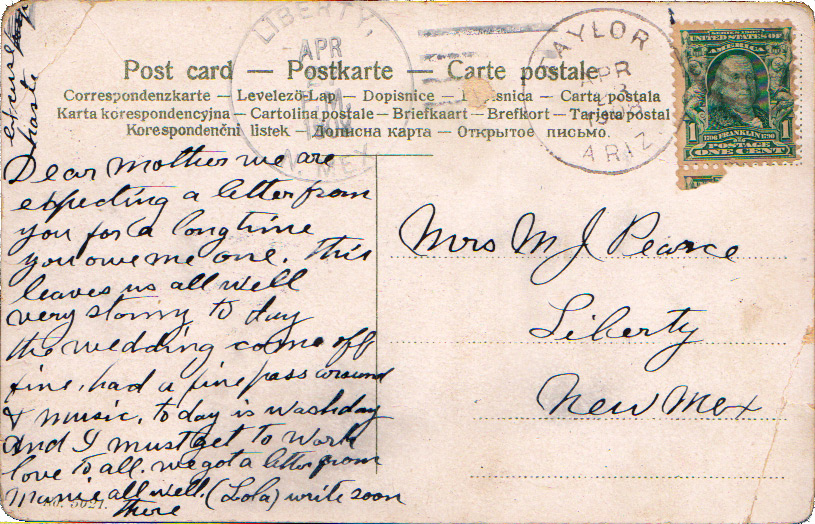 excuse
haste
Post card — Postkarte — Carte postale
Correspondenzkarte — Levelező-Lap — Dopisnice — Carta postala
Karta korespondencyjna — Cartolina postale — Briefkaart — Brefkort — Tarjeta postal
Korespondenční lístek — Дописна карта — Открытое письмо.
LIBERTY,
APR
N. MEX
TAYLOR
APR
ARIZ
SERIES 1902
UNITED STATES OF
AMERICA
1706 FRANKLIN 1790
1 POSTAGE 1
ONE CENT
Dear Mother we are
expecting a letter from
you for a long time
you owe me one. This
leaves us all well
very stormy to day
the wedding come off
fine, had a fine pass around
& music, to day is washday
and I must get to work
love to all. we got a letter from
Mamie all well. (Lola) write soon
there
No. 5621.
Mrs M J Pearce
Liberty
New Mex